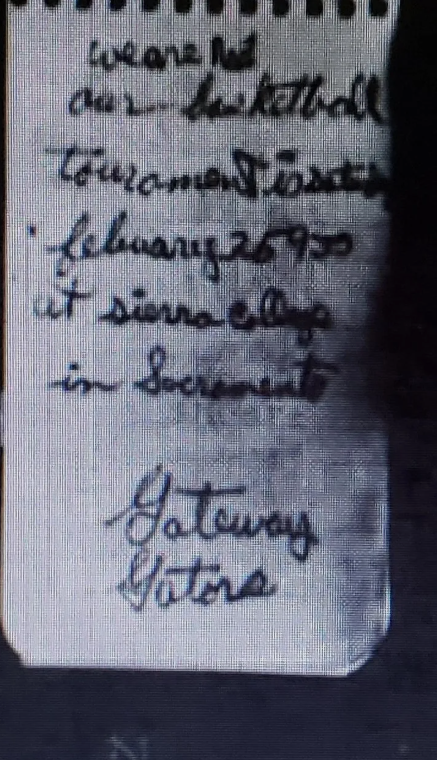 we are Red
our basketball
tourament is sat
febuary 25 900
at sierra college
in Sacramento
Gateway
Gators